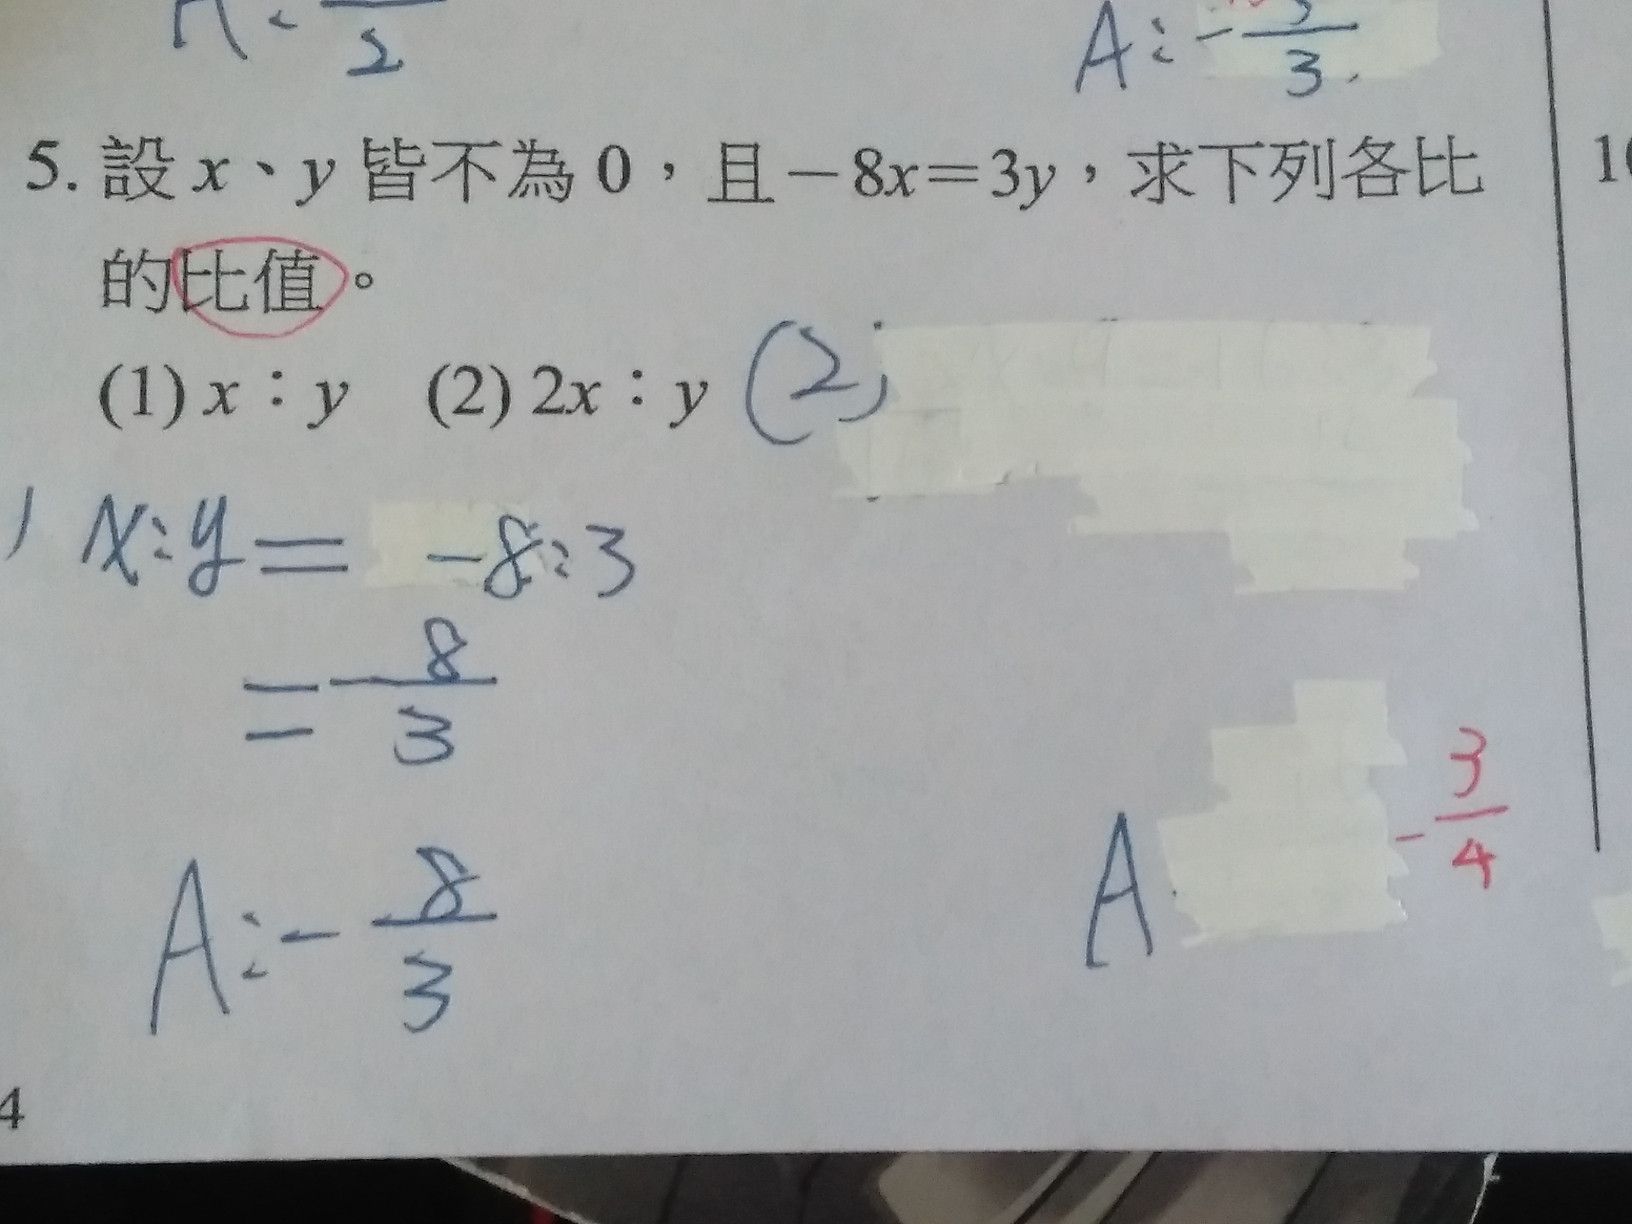 A:
2
A:-
3
5. 設 x、y 皆不為 0，且－8x＝3y，求下列各比
的比值。
(1) x：y (2) 2x：y (2)
) x:y= -8:3
=-8/3
A:-8/3
A -3/4
4